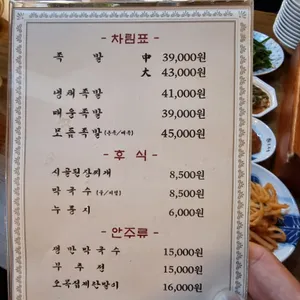 - 차림표 -
족 발 中 39,000원
大 43,000원
냉채족발 41,000원
매운족발 39,000원
모듬족발 45,000원
- 후 식 -
시골된장찌개 8,500원
막국수 8,500원
누룽지 6,000원
- 안주류 -
쟁반막국수 15,000원
부추전 15,000원
16,000원